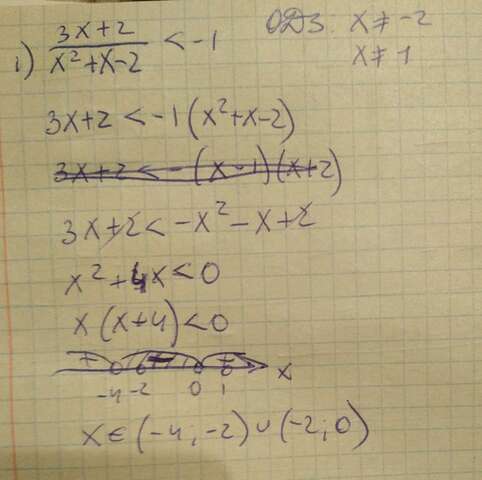 1) (3x+2)/(x²+x-2) < -1 ОДЗ. x ≠ -2
x ≠ 1
3x+2 < -1(x²+x-2)
3x+2 < -(x-1)(x+2)
3x+2 < -x²-x+2
x²+4x<0
x(x+4)<0
+ - + x
-4 -2 0 1
x ∈ (-4; -2) ∪ (-2; 0)